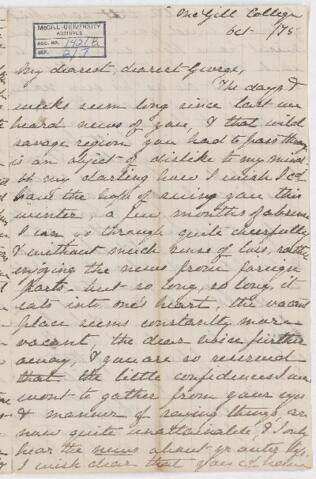 McGILL UNIVERSITY
ARCHIVES
ACC. NO. 1421/B
REF. 2/7
McGill College
Oct /75
My dearest, dearest George,
The days &
weeks seem long since last we
heard news of you, & that wild
savage region you had to pass through
is an object of dislike to my mind
Oh my darling how I wish I cd
have the hope of seeing you this
winter, a few months of absence
I can go through quite cheerfully
& without much sense of loss, rather
enjoying the news from foreign
parts. but so long, so long, it
eats into one's heart, the vacant
place seems constantly more
vacant, the dear voice further
away, & you are so reserved
that, the little confidences I am
wont to gather from your eyes
& manner of saying things, are
now quite unattainable, & I only
hear the news about yr outer life.
I wish dear that you cd